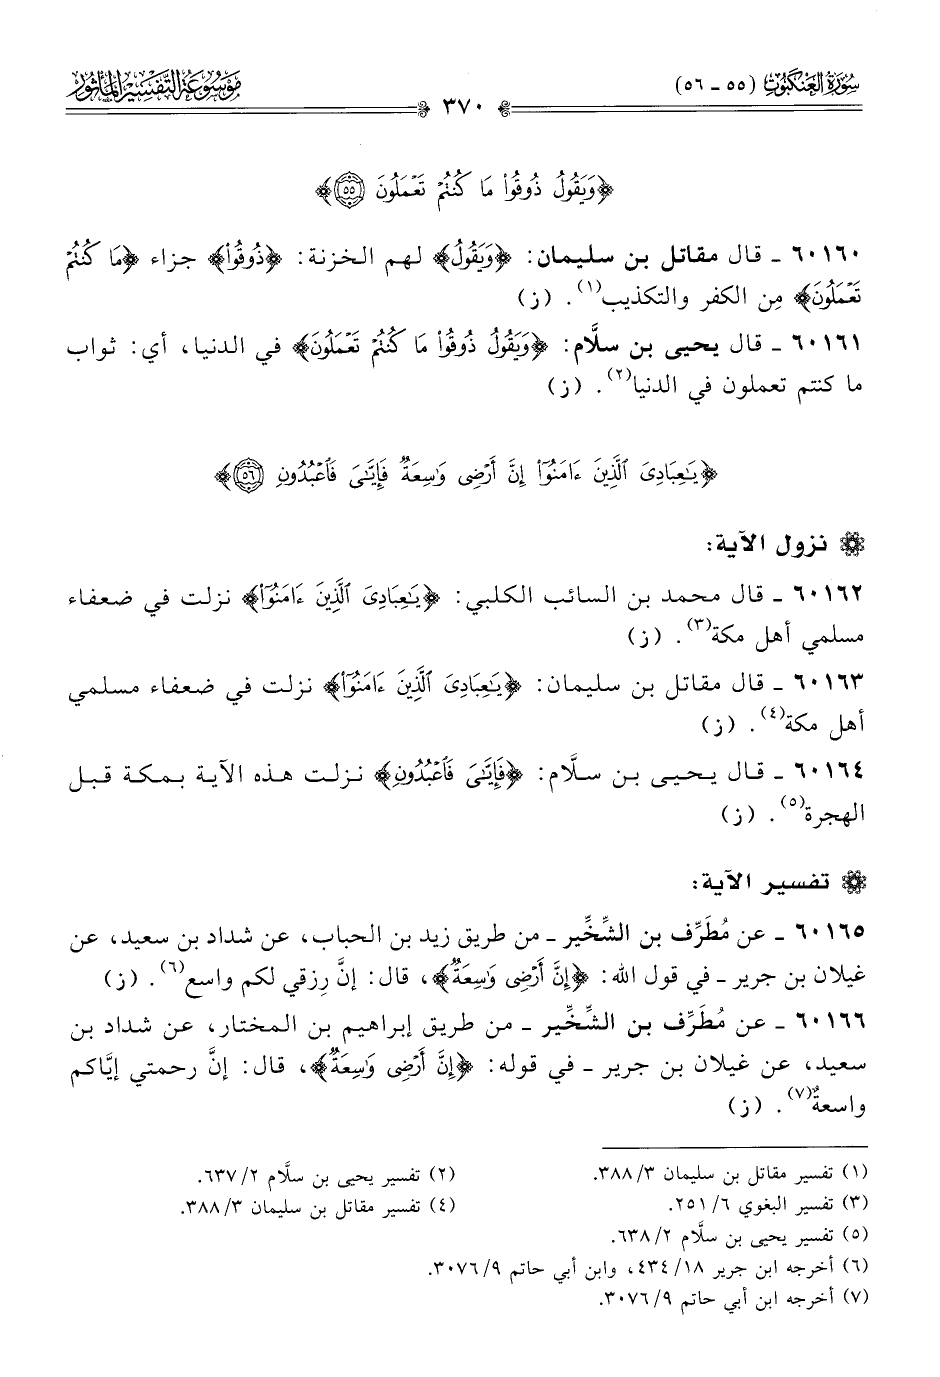 سورة العنكبوت (٥٥ - ٥٦)
موسوعة التفسير المأثور
٣٧٠
﴿وَيَقُولُ ذُوقُوا۟ مَا كُنتُمْ تَعْمَلُونَ ۝٥٥﴾
٦٠١٦٠ - قال مقاتل بن سليمان: ﴿وَيَقُولُ﴾ لهم الخزنة: ﴿ذُوقُوا۟﴾ جزاء ﴿مَا كُنتُمْ
تَعْمَلُونَ﴾ مِن الكفر والتكذيب(١). (ز)
٦٠١٦١ - قال يحيى بن سلَّام: ﴿وَيَقُولُ ذُوقُوا۟ مَا كُنتُمْ تَعْمَلُونَ﴾ في الدنيا، أي: ثواب
ما كنتم تعملون في الدنيا(٢). (ز)
﴿يَـٰعِبَادِىَ ٱلَّذِينَ ءَامَنُوٓا۟ إِنَّ أَرْضِى وَٰسِعَةٌ فَإِيَّـٰىَ فَٱعْبُدُونِ ۝٥٦﴾
نزول الآية:
٦٠١٦٢ - قال محمد بن السائب الكلبي: ﴿يَـٰعِبَادِىَ ٱلَّذِينَ ءَامَنُوٓا۟﴾ نزلت في ضعفاء
مسلمي أهل مكة(٣). (ز)
٦٠١٦٣ - قال مقاتل بن سليمان: ﴿يَـٰعِبَادِىَ ٱلَّذِينَ ءَامَنُوٓا۟﴾ نزلت في ضعفاء مسلمي
أهل مكة(٤). (ز)
٦٠١٦٤ - قال يحيى بن سلَّام: ﴿فَإِيَّـٰىَ فَٱعْبُدُونِ﴾ نزلت هذه الآية بمكة قبل
الهجرة(٥). (ز)
تفسير الآية:
٦٠١٦٥ - عن مُطَرِّف بن الشِّخِّير - من طريق زيد بن الحباب، عن شداد بن سعيد، عن
غيلان بن جرير - في قول الله: ﴿إِنَّ أَرْضِى وَٰسِعَةٌ﴾، قال: إنَّ رِزقي لكم واسع(٦). (ز)
٦٠١٦٦ - عن مُطَرِّف بن الشِّخِّير - من طريق إبراهيم بن المختار، عن شداد بن
سعيد، عن غيلان بن جرير - في قوله: ﴿إِنَّ أَرْضِى وَٰسِعَةٌ﴾، قال: إنَّ رحمتي إيَّاكم
واسعةٌ(٧). (ز)
(١) تفسير مقاتل بن سليمان ٣/ ٣٨٨.
(٢) تفسير يحيى بن سلَّام ٢/ ٦٣٧.
(٣) تفسير البغوي ٦/ ٢٥١.
(٤) تفسير مقاتل بن سليمان ٣/ ٣٨٨.
(٥) تفسير يحيى بن سلَّام ٢/ ٦٣٨.
(٦) أخرجه ابن جرير ١٨/ ٤٣٤، وابن أبي حاتم ٩/ ٣٠٧٦.
(٧) أخرجه ابن أبي حاتم ٩/ ٣٠٧٦.